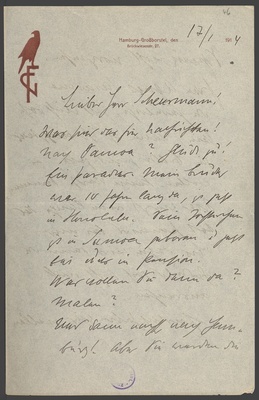 46
Hamburg-Großborstel, den 17/1 1914
Brückwiesenstr. 27.
Lieber Herr Scheuermann!
Was sind das für Nachrichten!
Nach Samoa? Glück zu!
Ein Paradies. Mein Bruder
war 10 Jahre lang da, ist jetzt
in Honolulu. Sein
ist in Samoa geboren u jetzt
bei in Pension.
Was wollen Sie denn da?
Malen?
Und dann noch nach Ham-
burg! Aber Sie werden die